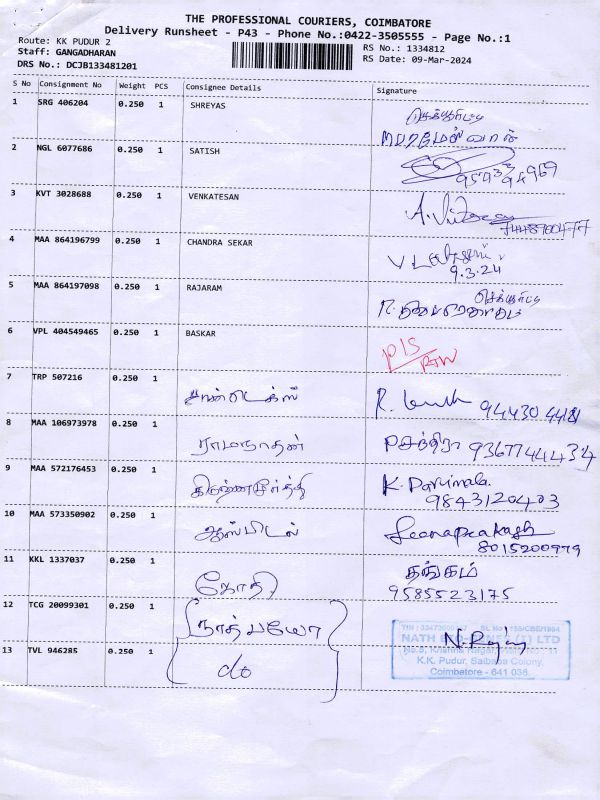 THE PROFESSIONAL COURIERS, COIMBATORE
Delivery Runsheet - P43 - Phone No.:0422-3505555 - Page No.:1
Route: KK PUDUR 2 RS No.: 1334812
Staff: GANGADHARAN RS Date: 09-Mar-2024
DRS No.: DCJB133481201
S No Consignment No Weight PCS Consignee Details Signature
1 SRG 406204 0.250 1 SHREYAS செக்யூரிட்டி
பரமேஸ்வரன்
2 NGL 6077686 0.250 1 SATISH
3 KVT 3028688 0.250 1 VENKATESAN
4 MAA 864196799 0.250 1 CHANDRA SEKAR
9.3.24
5 MAA 864197098 0.250 1 RAJARAM செக்யூரிட்டி
6 VPL 404549465 0.250 1 BASKAR
7 TRP 507216 0.250 1
8 MAA 106973978 0.250 1 ராமநாதன் 9367744434
9 MAA 572176453 0.250 1 கிருஷ்ணமூர்த்தி K. Parimala
9843120403
10 MAA 573350902 0.250 1 Leenaprakash
8015200979
11 KKL 1337037 0.250 1 ஜோதி தங்கம்
9585523175
12 TCG 20099301 0.250 1 நாத் பயோ
NATH LTD
K.K. Pudur, Saibaba Colony,
Coimbatore - 641 038.
13 TVL 946285 0.250 1 do